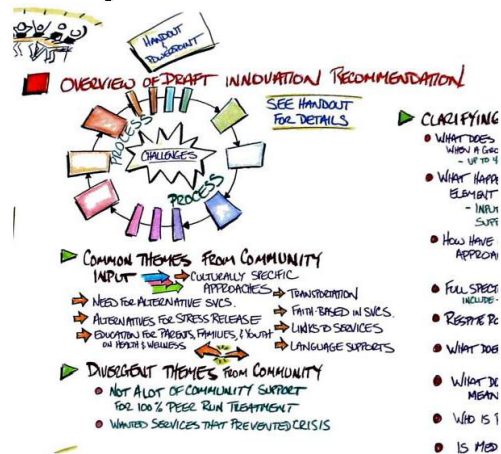 HANDOUT
&
POWERPOINT
OVERVIEW OF DRAFT INNOVATION RECOMMENDATION
SEE HANDOUT
FOR DETAILS
PROCESS
CHALLENGES
PROCESS
COMMON THEMES FROM COMMUNITY
INPUT
CULTURALLY SPECIFIC
APPROACHES
NEED FOR ALTERNATIVE SVCS.
ALTERNATIVES FOR STRESS RELEASE
EDUCATION FOR PARENTS, FAMILIES, & YOUTH
ON HEALTH & WELLNESS
TRANSPORTATION
FAITH-BASED IN SVCS.
LINKS TO SERVICES
LANGUAGE SUPPORTS
DIVERGENT THEMES FROM COMMUNITY
NOT A LOT OF COMMUNITY SUPPORT
FOR 100% PEER RUN TREATMENT
WANTED SERVICES THAT PREVENTED CRISIS
CLARIFYING
WHAT DOES
WHEN A
- UP TO 4
WHAT
ELEMENT
HOW HAVE
FULL
INCLUDE -
RESPITE
WHAT
WHAT
MEAN
WHO IS
IS